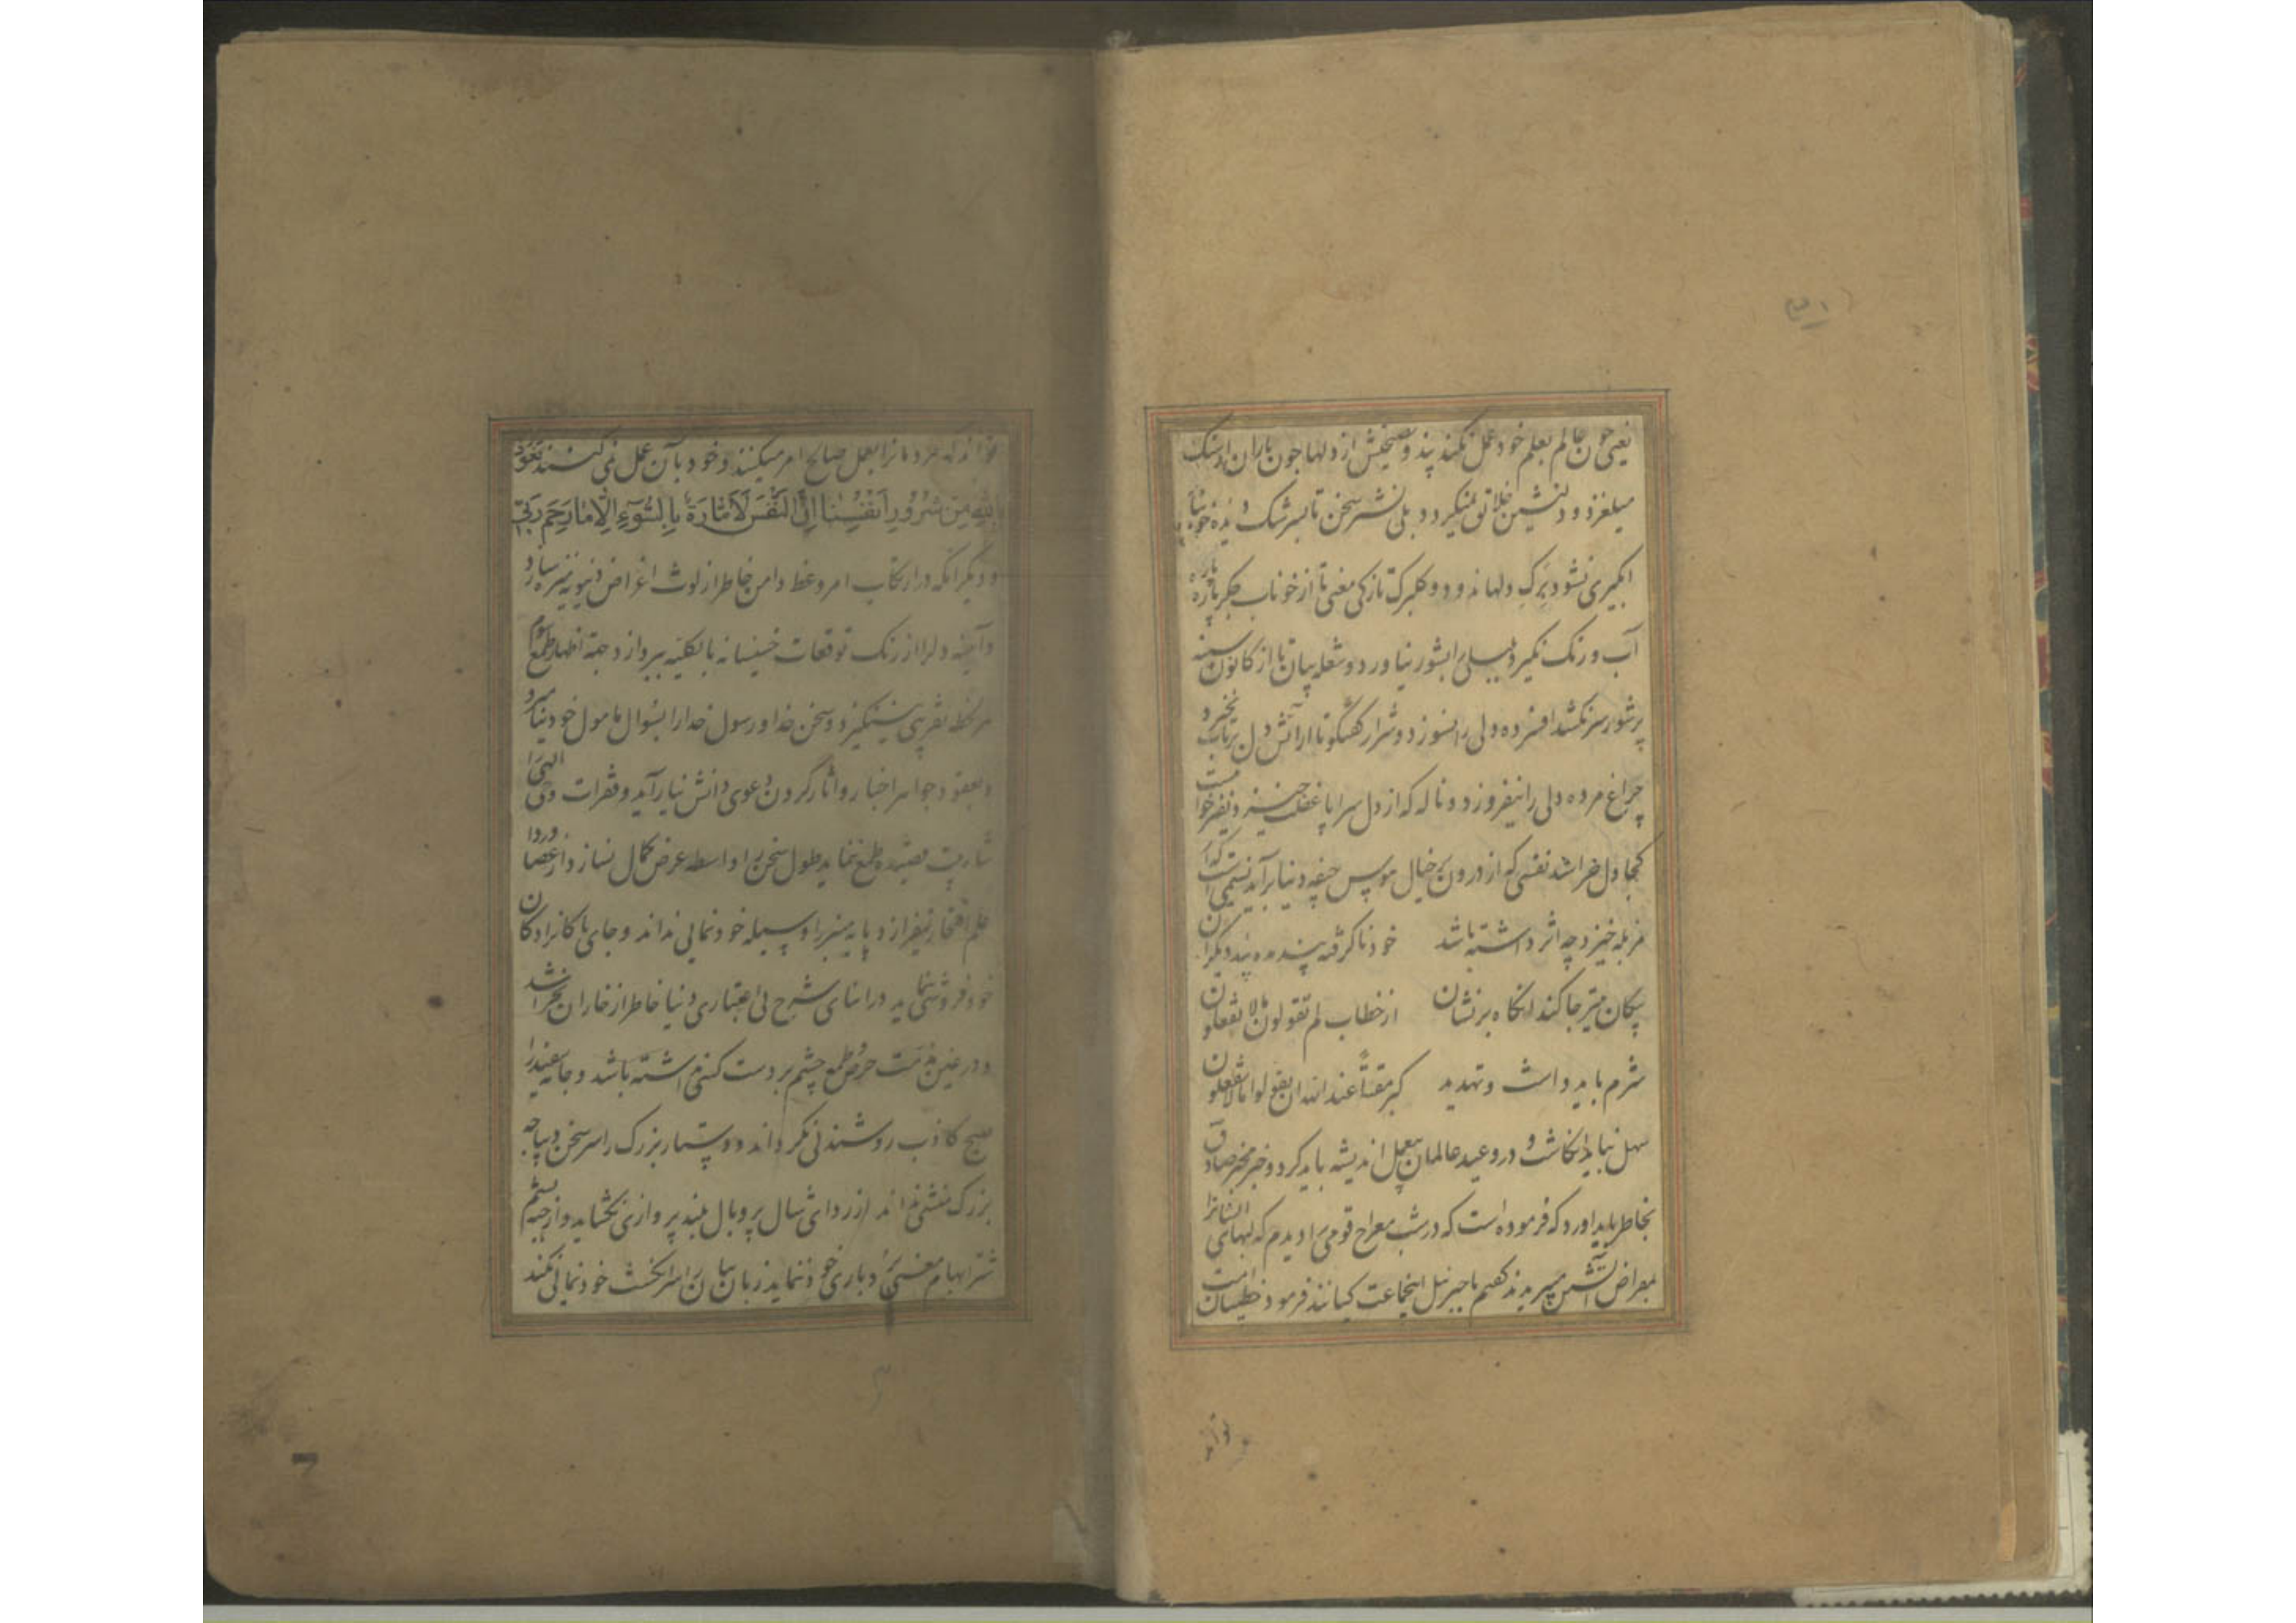 یعنی چون عالم بعلم خود عمل نکند پند و نصیحتش از دلها چون باران از سنک
میلغزد و دلنشین خلائق نمیکردد بلی نشتر سخن تا بسر شک دیده خونبا
آبکیری نشود برک دلها نه و دو کلبرک تازکی معنی تا از خوناب جکر پاره پاره
آب و رنک نکیرد بلبلی را بشور نیاورد و شعله بیان تا از کانون سینه
پرشور سر نکشد افسرده دلی را نسوزد و شرار کفتکو تا از آتش دل برنخیزد
چراغ مرده دلی را نیفروزد و ناله که از دل سراپا غفلت خیزد
کجا دل خراشد نفسی که از درون پر خیال هوس جیفه دنیا برآید نسیمی است که از
مزبله خیزد چه اثر داشته باشد خود ناکرفته پند مده پند دیکران
پیکان بتیر جا کند آنکاه بر نشان از خطاب لم تقولون مالا تفعلون
شرم باید داشت و تهدید کبر مقتا عند الله ان تقولوا مالا تفعلون
سهل نباید انکاشت و در وعید عالمان بیعمل اندیشه باید کرد و خبر مخبر صادق
بخاطر باید آورد که فرموده است که در شب معراج قومی را دیدم که لبهای ایشانرا
بمقراض آتشین میبریدند کفتم یا جبرئیل اینجماعت کیانند فرمود خطیبان امت
تواند
تواند که مردمانرا بعمل صالح امر میکنند و خود بآن عمل نمی کنند نعوذ
بالله من شرور انفسنا ان النفس لامارة بالسوء الا ما رحم ربی
و دیکر آنکه در ارتکاب امر وعظ دامن خاطر از لوث اغراض دنیویه منزه سازد
و آینه دل را از زنک توقعات خسیسانه بالکلیه بپردازد و جهة اظهار طمع
هر لحظه تقریبی نینکیزد و سخن خدا و رسول خدا را بسؤال مامول خود نیامیزد
و بعقود جواهر اخبار و آثار کردن دعوی دانش نیاراید و فقرات وحی الهی را
طمع ننماید طول سخن را واسطه عرض کمال نسازد و از عصا
علم افتخار نیفرازد و پایه منبر را وسیله خودنمائی نداند و جای پاکانرا دکان
خودفروشی ننماید در اثنای شرح بی اعتباری دنیا خاطر از خار آن
و در عین مذمت حرص و طمع چشم بر دست کسی نداشته باشد و جامه سفید را
صبح کاذب روشندلی نکرداند و دستار بزرک را سر سخن دیباجه
بزرک منشی نداند از ردای شال پر و بال بلند پروازی نکشاید و از جبه پشم
شتر ابهام دباری خود ننماید زبان بیان را سر انکشت خودنمائی نکند